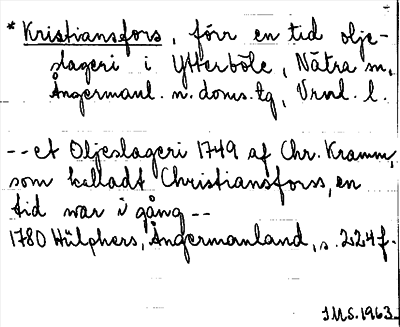 * Kristiansfors, förr en tid olje-
slageri i Ytterböle, Nätra sn,
Ångermanl. n. doms.tg, Vrnl. l.
-- et Oljeslageri 1749 af Chr. Kramm,
som kalladt Christiansforss, en
tid war i gång --
1780 Hülphers, Ångermanland, s. 224f.
IMS. 1963